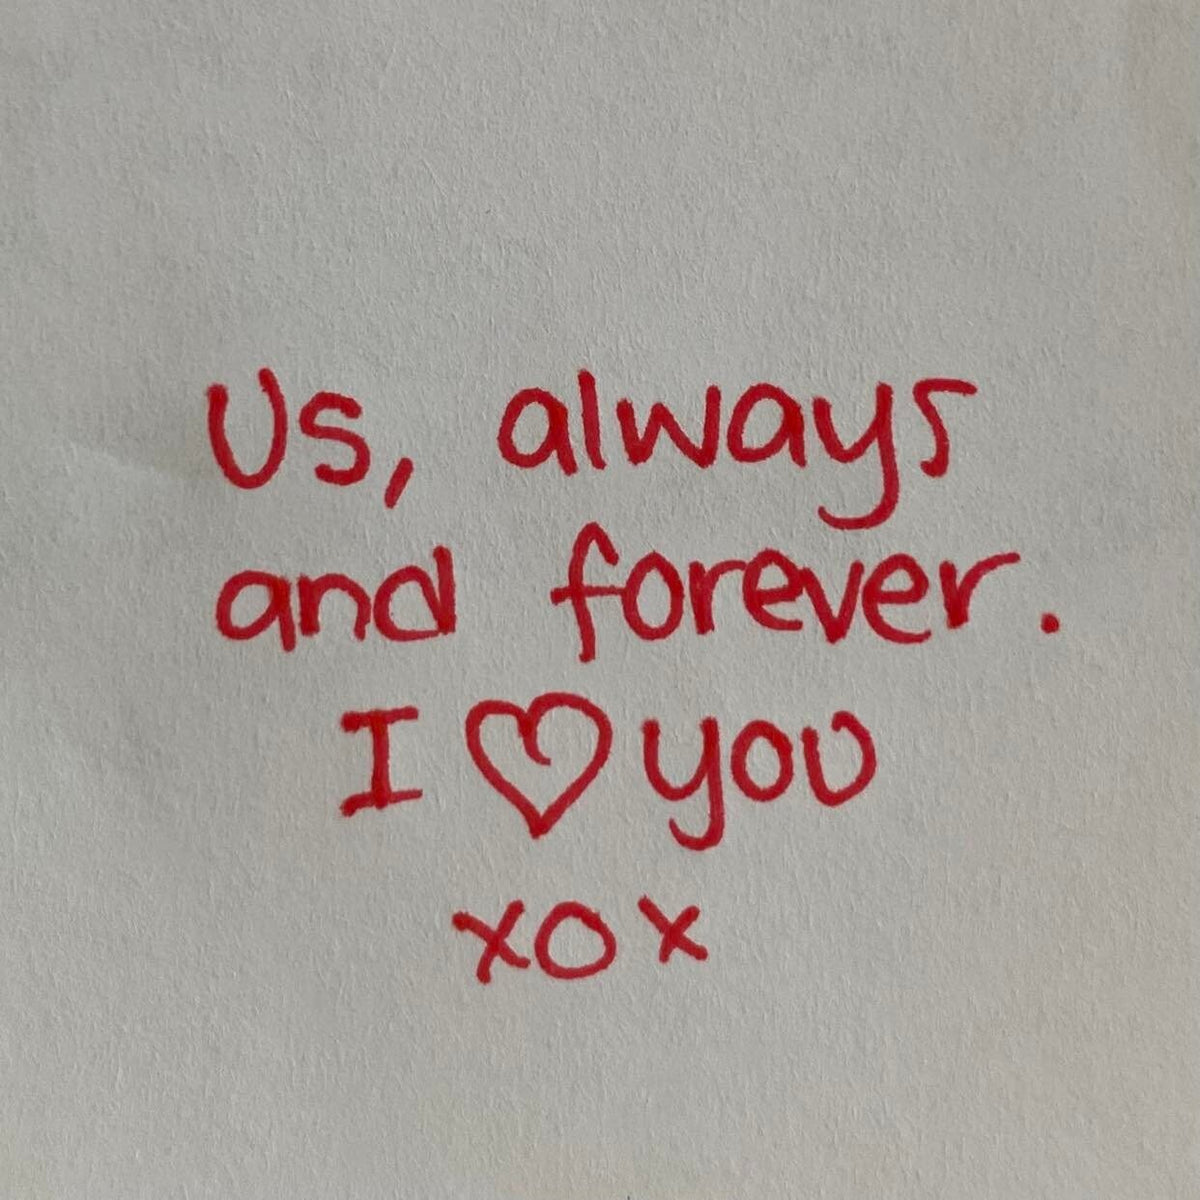 Us, always
and forever.
I ♡ you
xox